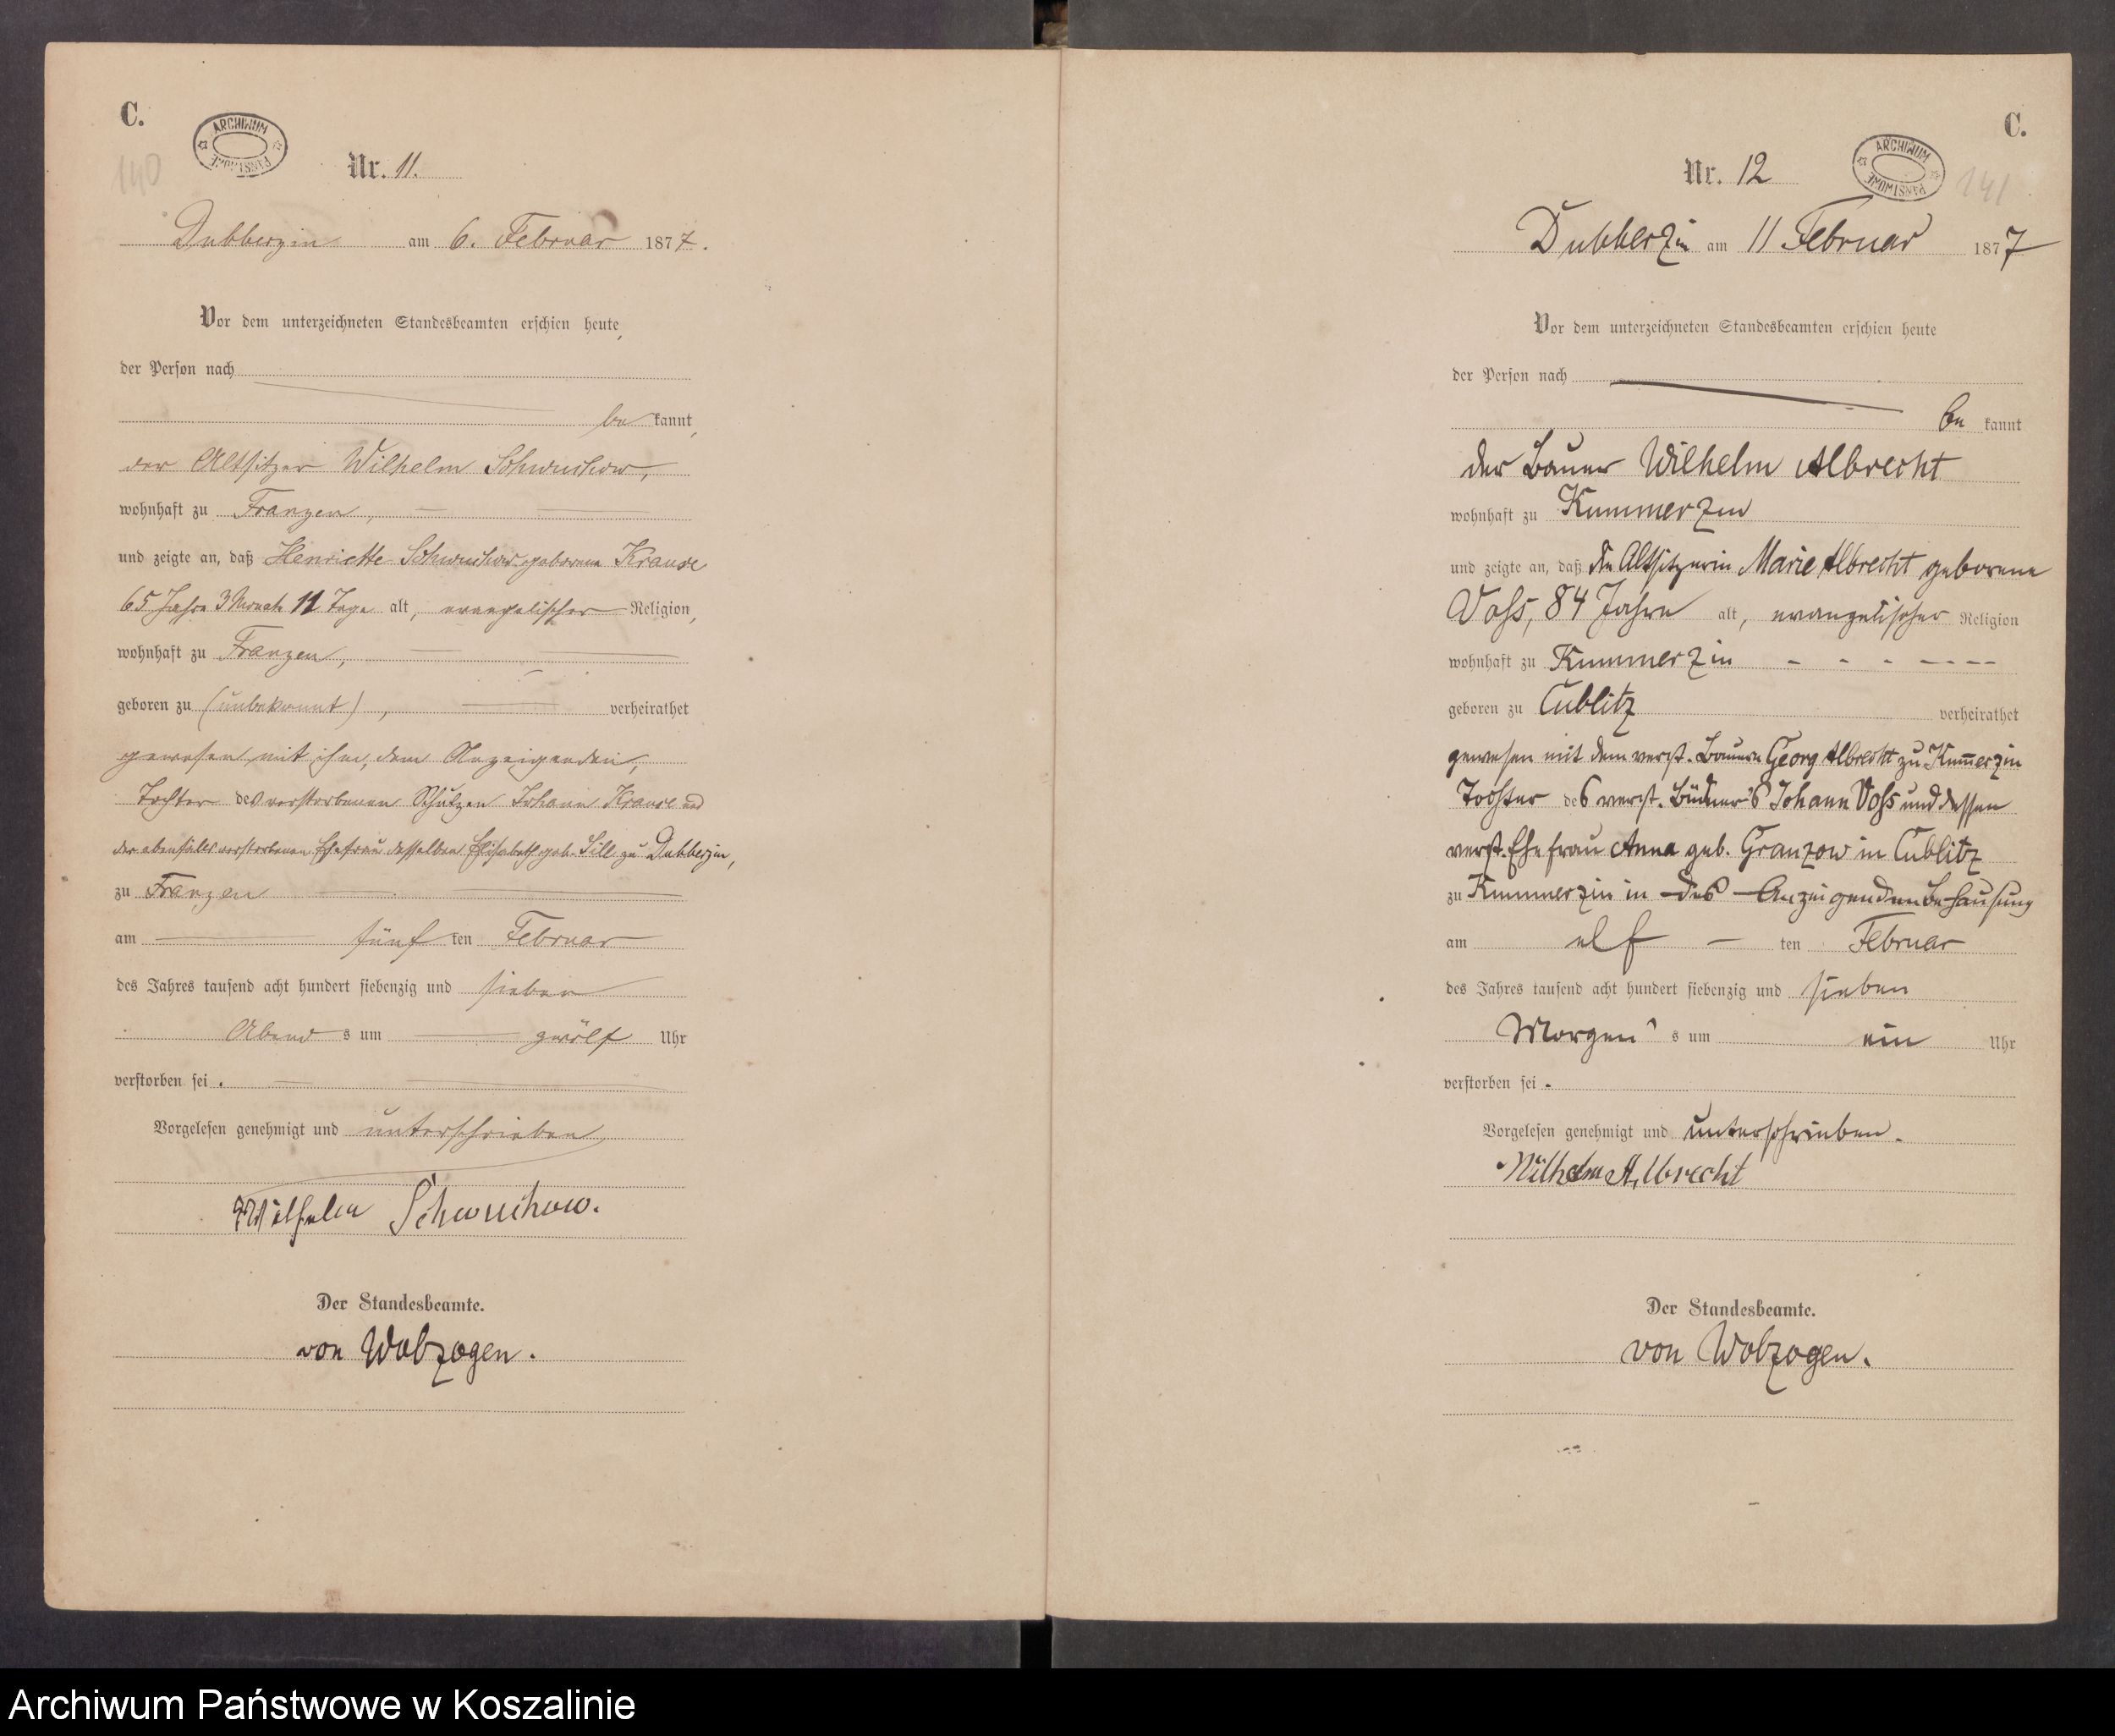 C.
ARCHIWUM PAŃSTWOWE
140
Nr. 11.
Dubberzin am 6. Februar 1877.
Vor dem unterzeichneten Standesbeamten erschien heute,
der Person nach
be kannt,
der Altsitzer Wilhelm Schwuchow,
wohnhaft zu Franzen,
und zeigte an, daß Henriette Schwuchow geborene Krause
65 Jahre 3 Monate 11 Tage alt, evangelischer Religion,
wohnhaft zu Franzen,
geboren zu (unbekannt), verheirathet
gewesen mit ihm, dem Anzeigenden,
Tochter des verstorbenen Schulzen Johann Krause und
der ebenfalls verstorbenen Ehefrau desselben Elisabeth geb. Sill zu Dubberzin,
zu Franzen
am fünf ten Februar
des Jahres tausend acht hundert siebenzig und sieben
Abend s um zwölf Uhr
verstorben sei.
Vorgelesen genehmigt und unterschrieben
Wilhelm Schwuchow.
Der Standesbeamte.
von Wobzogen.
C.
ARCHIWUM PAŃSTWOWE
141
Nr. 12
Dubberzin am 11 Februar 1877
Vor dem unterzeichneten Standesbeamten erschien heute
der Person nach
be kannt
der Bauer Wilhelm Albrecht
wohnhaft zu Kummerzin
und zeigte an, daß die Altsitzerin Marie Albrecht geborene
Voß, 84 Jahre alt, evangelischer Religion
wohnhaft zu Kummerzin - - - - - - -
geboren zu Cublitz verheirathet
gewesen mit dem verst. Bauern Georg Albrecht zu Kum̅erzin
Tochter des verst. Büdner's Johann Voß und dessen
verst. Ehefrau Anna geb. Granzow in Cublitz
zu Kummerzin in des Anzeigenden Behausung
am elf ten Februar
des Jahres tausend acht hundert siebenzig und sieben
Morgen s um ein Uhr
verstorben sei.
Vorgelesen genehmigt und unterschrieben.
Wilhelm Albrecht
Der Standesbeamte.
von Wobzogen.
Archiwum Państwowe w Koszalinie